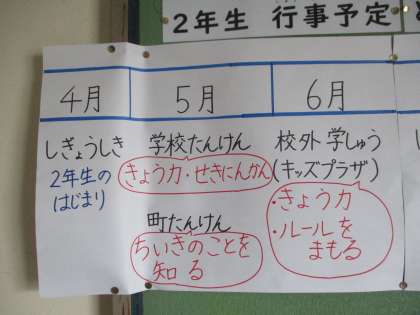 2年生 行事予定
4月
5月
6月
しぎょうしき
2年生の
はじまり
学校たんけん
きょう力・せきにんかん
町たんけん
ちいきのことを
知る
校外学しゅう
(キッズプラザ)
・きょう力
・ルールを
まもる